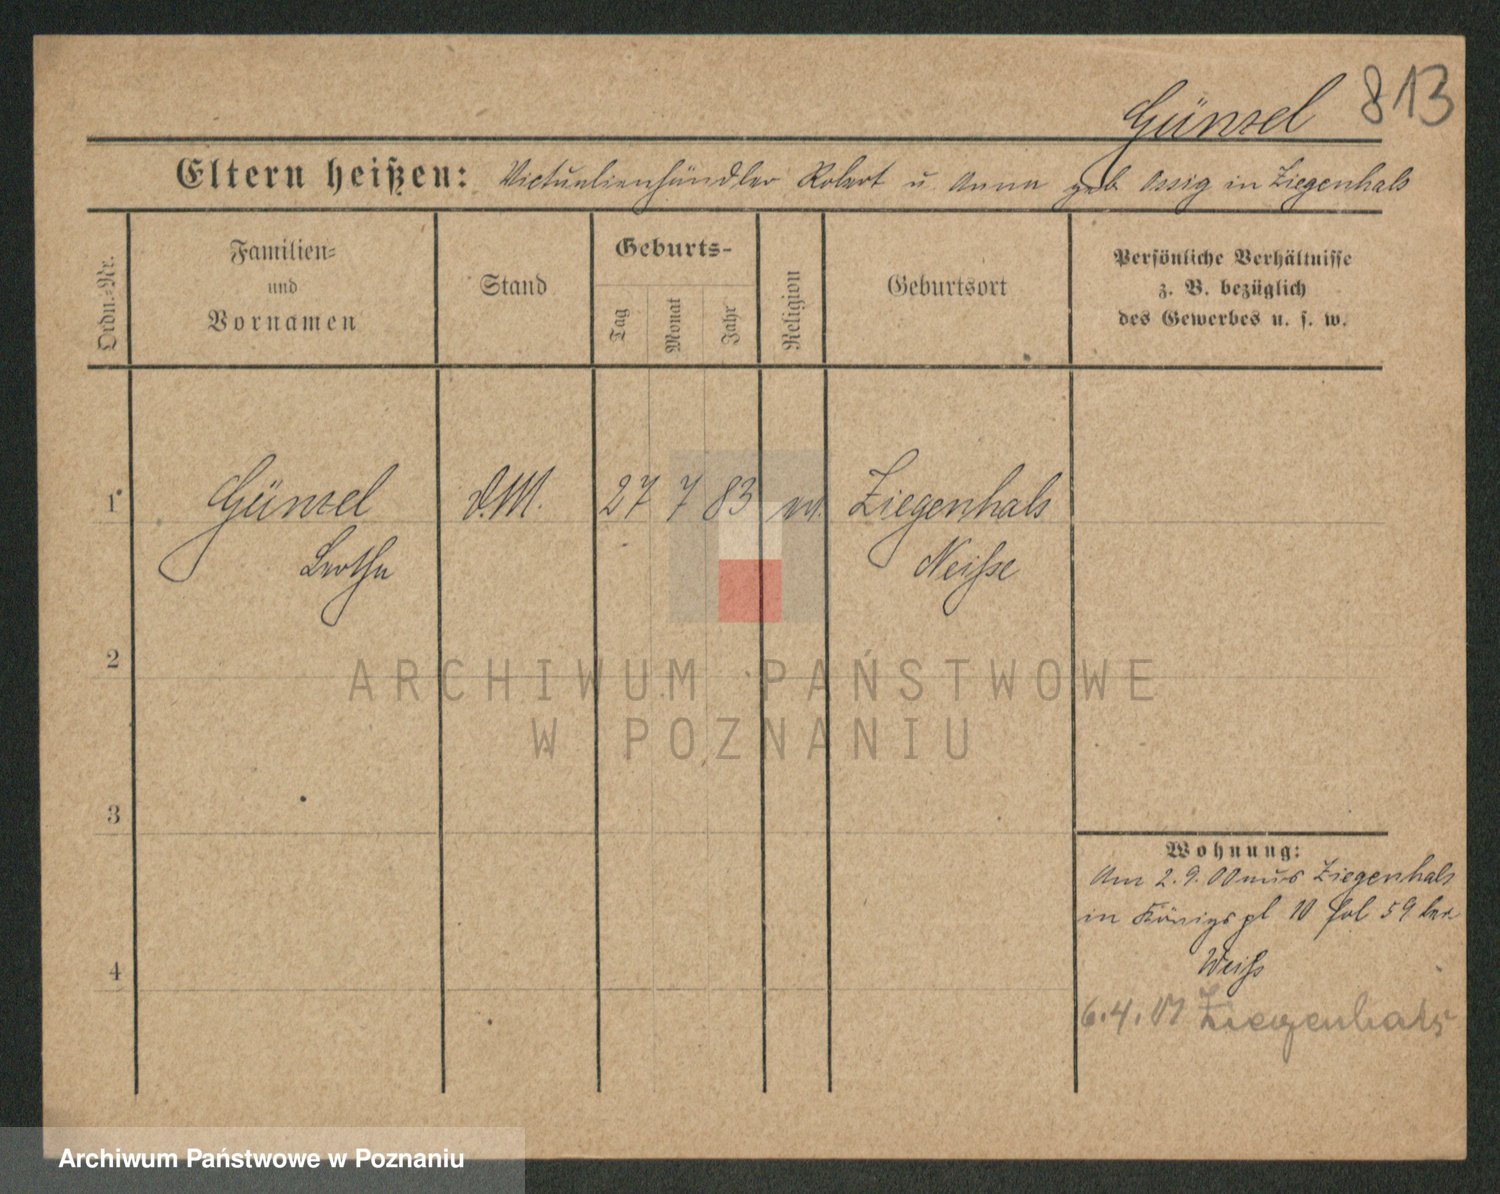 813
Günzel
Eltern heißen: Victualienhändler Robert u. Anna geb Ossig in Ziegenhals
Ordn.-Nr.
Familien-
und
Vornamen
Stand
Geburts-
Tag
Monat
Jahr
Religion
Geburtsort
Persönliche Verhältnisse
z. B. bezüglich
des Gewerbes u. s. w.
1 Günzel D.M. 27 7 83 Ziegenhals
Neisse
2
ARCHIWUM PAŃSTWOWE
W POZNANIU
3
Wohnung:
Am 2.9.00 aus Ziegenhals
in Königspl 10 fol 59 bei
Weiß
4
6.4.01 Ziegenhals
Archiwum Państwowe w Poznaniu